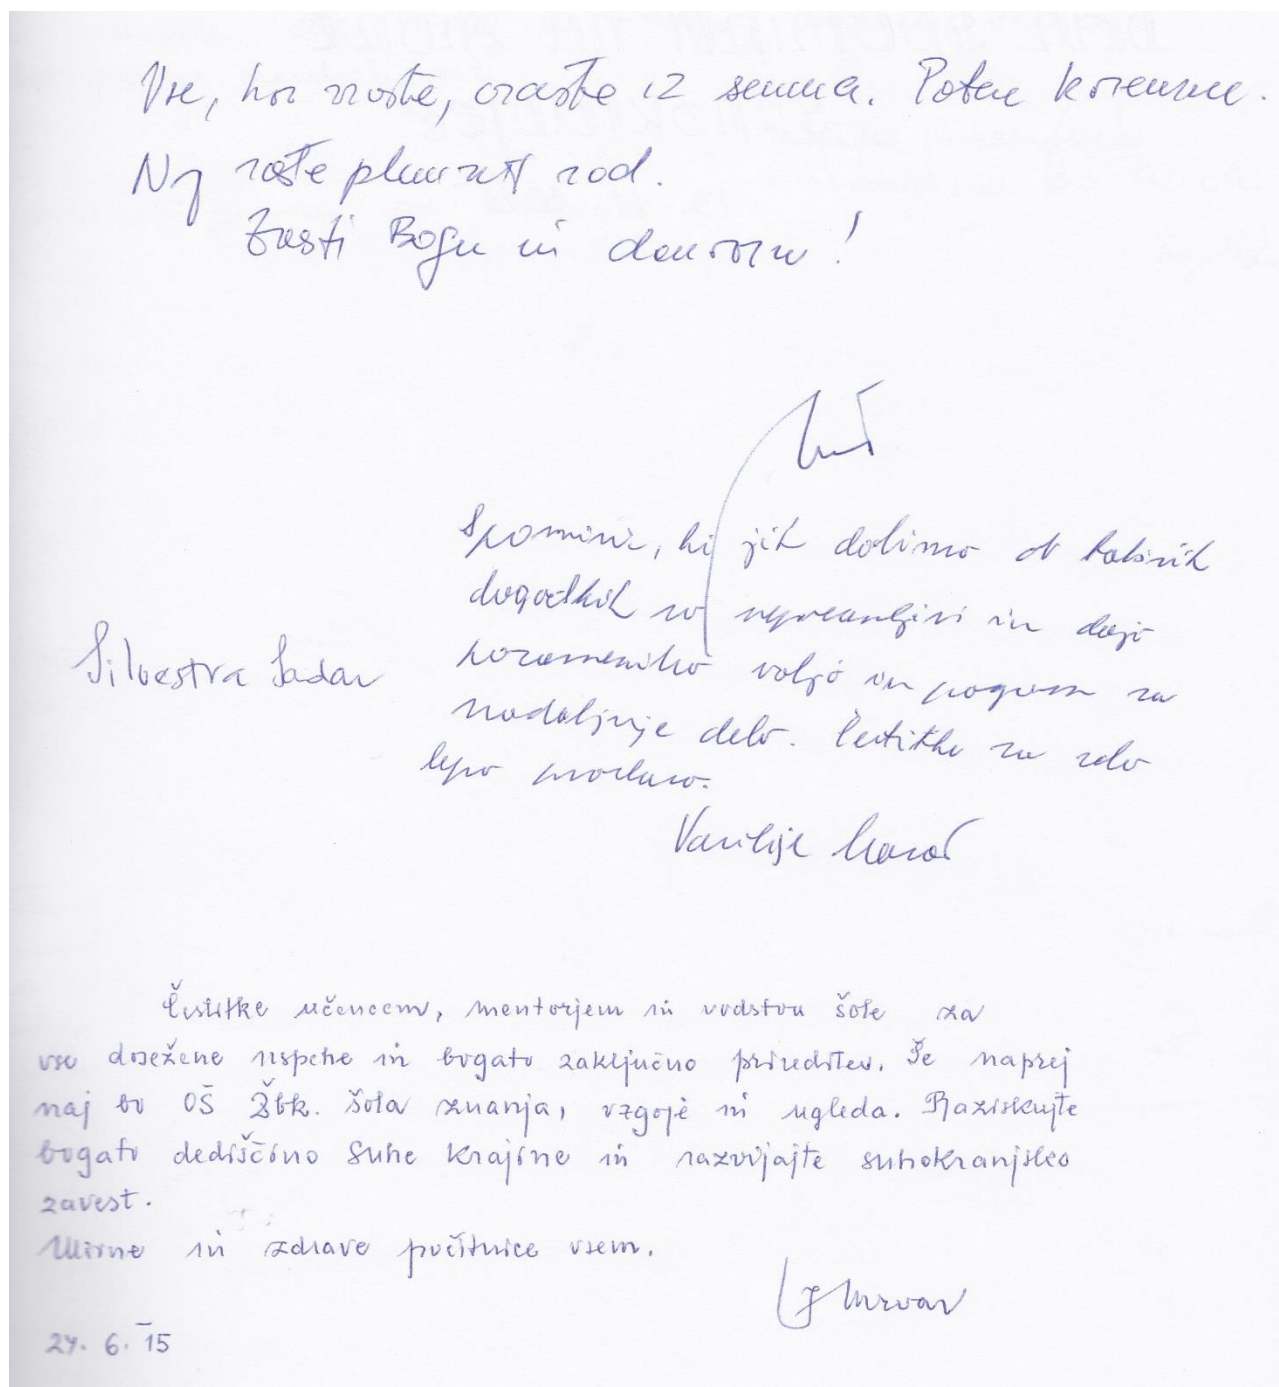 Vse, kar raste, zraste iz semena. Potem korenine.
Naj raste plemeniti rod.
Zvesti Bogu in domovini!
Spomini, ki jih dobimo ob takšnih
dogodkih so neprecenljivi in dajo
posamezniku voljo in pogum za
nadaljnje delo. Čestitke za zelo
lepo proslavo.
Silvestra Sadar
Vasilije
Čestitke učencem, mentorjem in vodstvu šole za
vse dosežene uspehe in bogato zaključno prireditev. Še naprej
naj bo OŠ Žbk. šola znanja, vzgoje in ugleda. Raziskujte
bogato dediščino Suhe Krajine in razvijajte suhokranjsko
zavest.
Mirne in zdrave počitnice vsem.
Mrvar
24. 6. 15